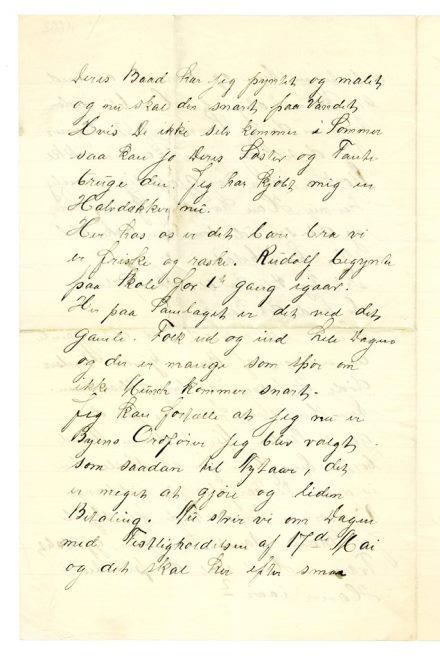 Deres Baad har jeg pyntet og malet
og nu skal den snart paa Vandet
Hvis De ikke selv kommer i Sommer
saa kan jo Deres Søster og Tante
bruge den. Jeg har kjøbt mig en
Halvdækker nu.
Her hos os er det bare bra vi
er friske og raske. Rudolf begynte
paa Skole for 1st gang igaar.
Her paa Samlaget er det ved det
gamle. Folk ud og ind hele Dagen
og der er mange som spør om
ikke Munch kommer snart.
Jeg kan fortælle at jeg nu er
Byens Ordfører jeg blev valgt
som saadan til Nytaar, det
er meget at gjøre og liden
Betaling. Nu strir vi om Dagen
med Festligholdelsen af 17de Mai
og det skal her efter smaa